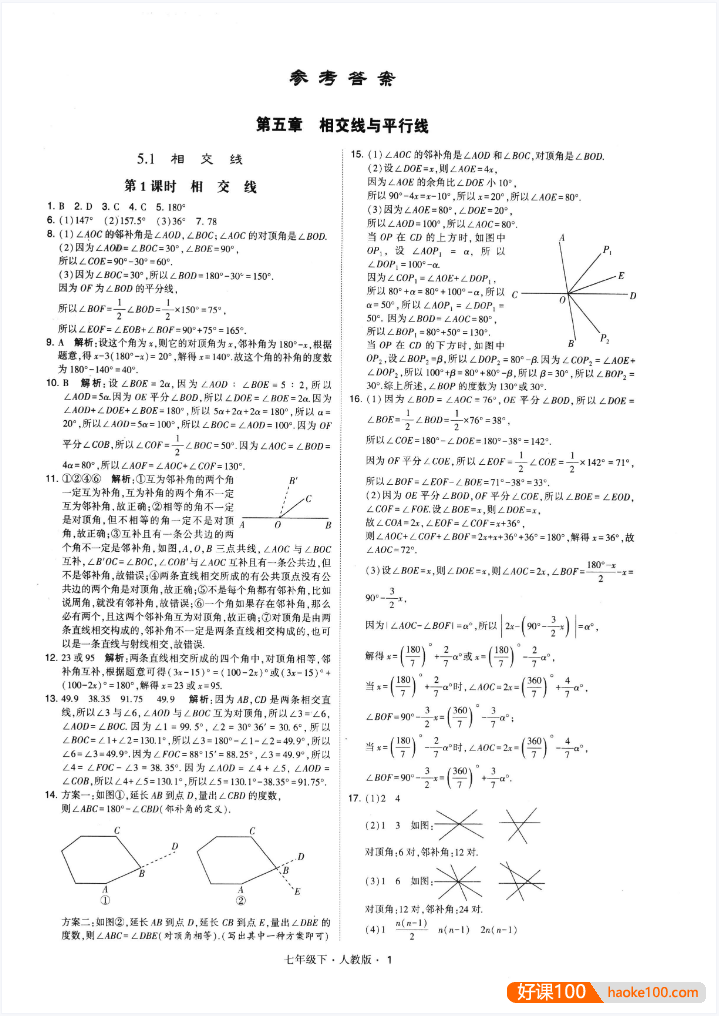 参考答案
第五章 相交线与平行线
5.1 相交线
第1课时 相交线
1. B 2. D 3. C 4. C 5. 180°
6. (1)147° (2)157.5° (3)36° 7. 78
8. (1)∠AOC的邻补角是∠AOD,∠BOC;∠AOC的对顶角是∠BOD.
(2)因为∠AOD=∠BOC=30°,∠BOE=90°,
所以∠COE=90°-30°=60°.
(3)因为∠BOC=30°,所以∠BOD=180°-30°=150°.
因为OF为∠BOD的平分线,
所以∠BOF=1/2∠BOD=1/2×150°=75°,
所以∠EOF=∠EOB+∠BOF=90°+75°=165°.
9. A 解析:设这个角为x,则它的对顶角为x,邻补角为180°-x,根据
题意,得x-3(180°-x)=20°,解得x=140°.故这个角的补角的度数
为180°-140°=40°.
10. B 解析:设∠BOE=2α,因为∠AOD:∠BOE=5:2,所以
∠AOD=5α.因为OE平分∠BOD,所以∠DOE=∠BOE=2α.因为
∠AOD+∠DOE+∠BOE=180°,所以5α+2α+2α=180°,所以α=
20°,所以∠AOD=5α=100°,所以∠BOC=∠AOD=100°.因为OF
平分∠COB,所以∠COF=1/2∠BOC=50°.因为∠AOC=∠BOD=
4α=80°,所以∠AOF=∠AOC+∠COF=130°.
11. ①②④⑥ 解析:①互为邻补角的两个角
一定互为补角,互为补角的两个角不一定
互为邻补角,故正确;②相等的角不一定
是对顶角,但不相等的角一定不是对顶
角,故正确;③互补且有一条公共边的两
个角不一定是邻补角,如图,A,O,B三点共线,∠AOC与∠BOC
互补,∠B'OC=∠BOC,∠COB'与∠AOC互补且有一条公共边,但
不是邻补角,故错误;④两条直线相交所成的有公共顶点没有公
共边的两个角是对顶角,故正确;⑤不是每个角都有邻补角,比如
说周角,就没有邻补角,故错误;⑥一个角如果存在邻补角,那么
必有两个,且这两个邻补角互为对顶角,故正确;⑦对顶角是由两
条直线相交构成的,邻补角不一定是两条直线相交构成的,也可
以是一条直线与射线相交,故错误.
B'
C
A O B
12. 23或95 解析:两条直线相交所成的四个角中,对顶角相等,邻
补角互补,根据题意可得(3x-15)°=(100-2x)°或(3x-15)°+
(100-2x)°=180°,解得x=23或x=95.
13. 49.9 38.35 91.75 49.9 解析:因为AB,CD是两条相交直
线,所以∠3与∠6,∠AOD与∠BOC互为对顶角,所以∠3=∠6,
∠AOD=∠BOC.因为∠1=99.5°,∠2=30°36'=30.6°,所以
∠BOC=∠1+∠2=130.1°,所以∠3=180°-∠1-∠2=49.9°,所以
∠6=∠3=49.9°.因为∠FOC=88°15'=88.25°,∠3=49.9°,所以
∠4=∠FOC-∠3=38.35°.因为∠AOD=∠4+∠5,∠AOD=
∠COB,所以∠4+∠5=130.1°,所以∠5=130.1°-38.35°=91.75°.
14. 方案一:如图①,延长AB到点D,量出∠CBD的度数,
则∠ABC=180°-∠CBD(邻补角的定义).
C D
B
A
①
C
D
B
A E
②
方案二:如图②,延长AB到点D,延长CB到点E,量出∠DBE的
度数,则∠ABC=∠DBE(对顶角相等).(写出其中一种方案即可)
15. (1)∠AOC的邻补角是∠AOD和∠BOC,对顶角是∠BOD.
(2)设∠DOE=x,则∠AOE=4x,
因为∠AOE的余角比∠DOE小10°,
所以90°-4x=x-10°,所以x=20°,所以∠AOE=80°.
(3)因为∠AOE=80°,∠DOE=20°,
所以∠AOD=100°,所以∠AOC=80°.
当OP在CD的上方时,如图中
OP₁,设∠AOP₁=α,所以
∠DOP₁=100°-α.
因为∠COP₁=∠AOE+∠DOP₁,
所以80°+α=80°+100°-α,所以
α=50°,所以∠AOP₁=∠DOP₁=
50°.因为∠BOD=∠AOC=80°,
所以∠BOP₁=80°+50°=130°.
当OP在CD的下方时,如图中
OP₂,设∠BOP₂=β,所以∠DOP₂=80°-β.因为∠COP₂=∠AOE+
∠DOP₂,所以100°+β=80°+80°-β,所以β=30°,所以∠BOP₂=
30°.综上所述,∠BOP的度数为130°或30°.
A
P₁
E
C O D
B P₂
16. (1)因为∠BOD=∠AOC=76°,OE平分∠BOD,所以∠DOE=
∠BOE=1/2∠BOD=1/2×76°=38°,
所以∠COE=180°-∠DOE=180°-38°=142°.
因为OF平分∠COE,所以∠EOF=1/2∠COE=1/2×142°=71°,
所以∠BOF=∠EOF-∠BOE=71°-38°=33°.
(2)因为OE平分∠BOD,OF平分∠COE,所以∠BOE=∠EOD,
∠COF=∠FOE.设∠BOE=x,则∠DOE=x,
故∠COA=2x,∠EOF=∠COF=x+36°,
则∠AOC+∠COF+∠BOF=2x+x+36°+36°=180°,解得x=36°,故
∠AOC=72°.
(3)设∠BOE=x,则∠DOE=x,则∠AOC=2x,∠BOF=(180°-x)/2-x=
90°-3/2x,
因为|∠AOC-∠BOF|=α°,所以|2x-(90°-3/2x)|=α°,
解得x=(180/7)°+2/7α°或x=(180/7)°-2/7α°,
当x=(180/7)°+2/7α°时,∠AOC=2x=(360/7)°+4/7α°,
∠BOF=90°-3/2x=(360/7)°-3/7α°;
当x=(180/7)°-2/7α°时,∠AOC=2x=(360/7)°-4/7α°,
∠BOF=90°-3/2x=(360/7)°+3/7α°.
17. (1)2 4
(2)1 3 如图:
对顶角:6对,邻补角:12对.
(3)1 6 如图:
对顶角:12对,邻补角:24对.
(4)1 n(n-1)/2 n(n-1) 2n(n-1)
七年级下·人教版·1
好课100 haoke100.com